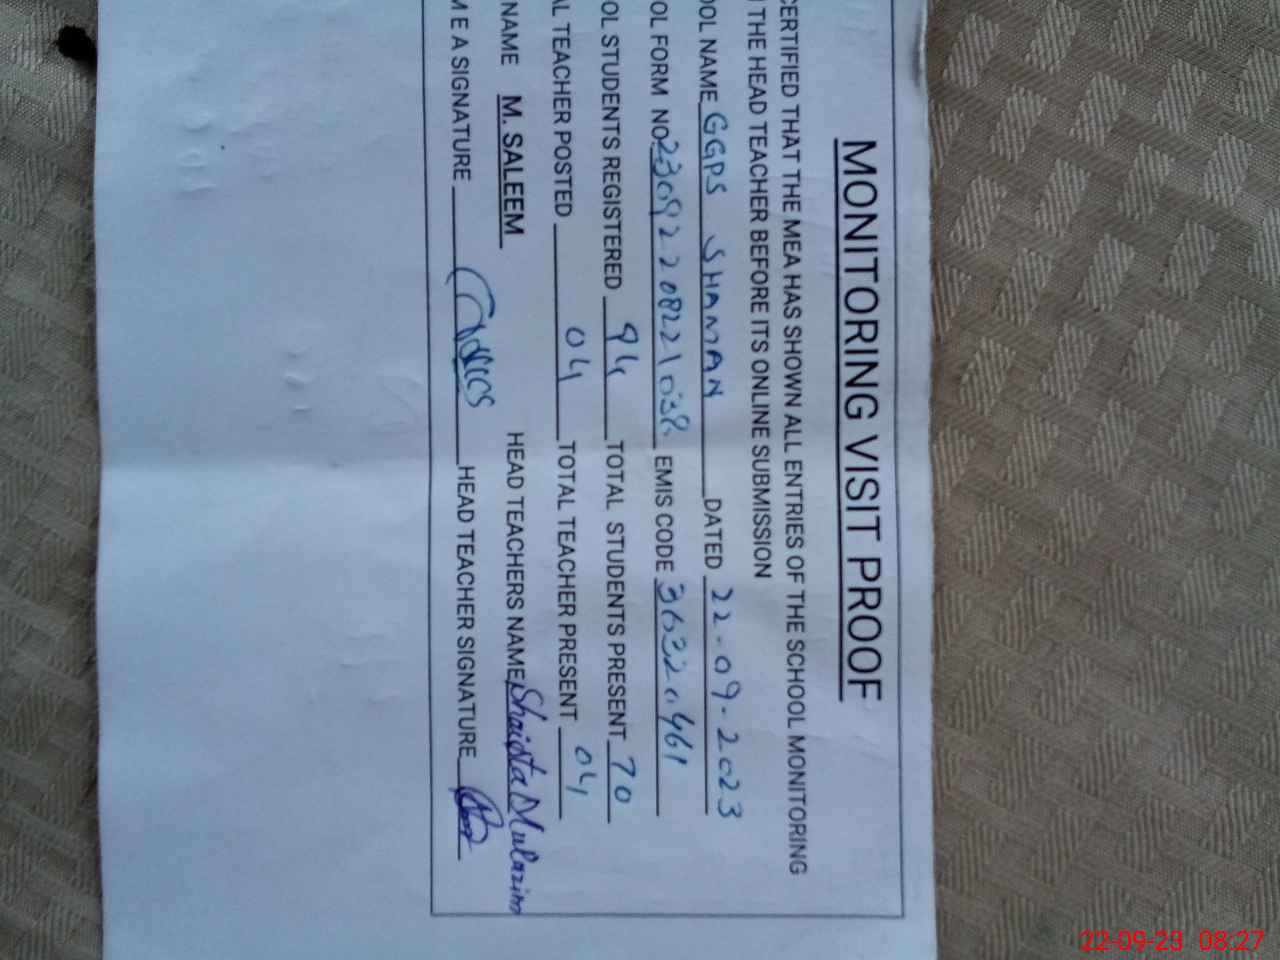 MONITORING VISIT PROOF
CERTIFIED THAT THE MEA HAS SHOWN ALL ENTRIES OF THE SCHOOL MONITORING
THE HEAD TEACHER BEFORE ITS ONLINE SUBMISSION
OOL NAME GGPS SHAMAN DATED 22-09-2023
OOL FORM NO. 23092208221038 EMIS CODE 36320461
OL STUDENTS REGISTERED 94 TOTAL STUDENTS PRESENT 70
AL TEACHER POSTED 04 TOTAL TEACHER PRESENT 04
NAME M. SALEEM HEAD TEACHERS NAME Shaista Mulazim
M E A SIGNATURE HEAD TEACHER SIGNATURE
22-09-23 08:27